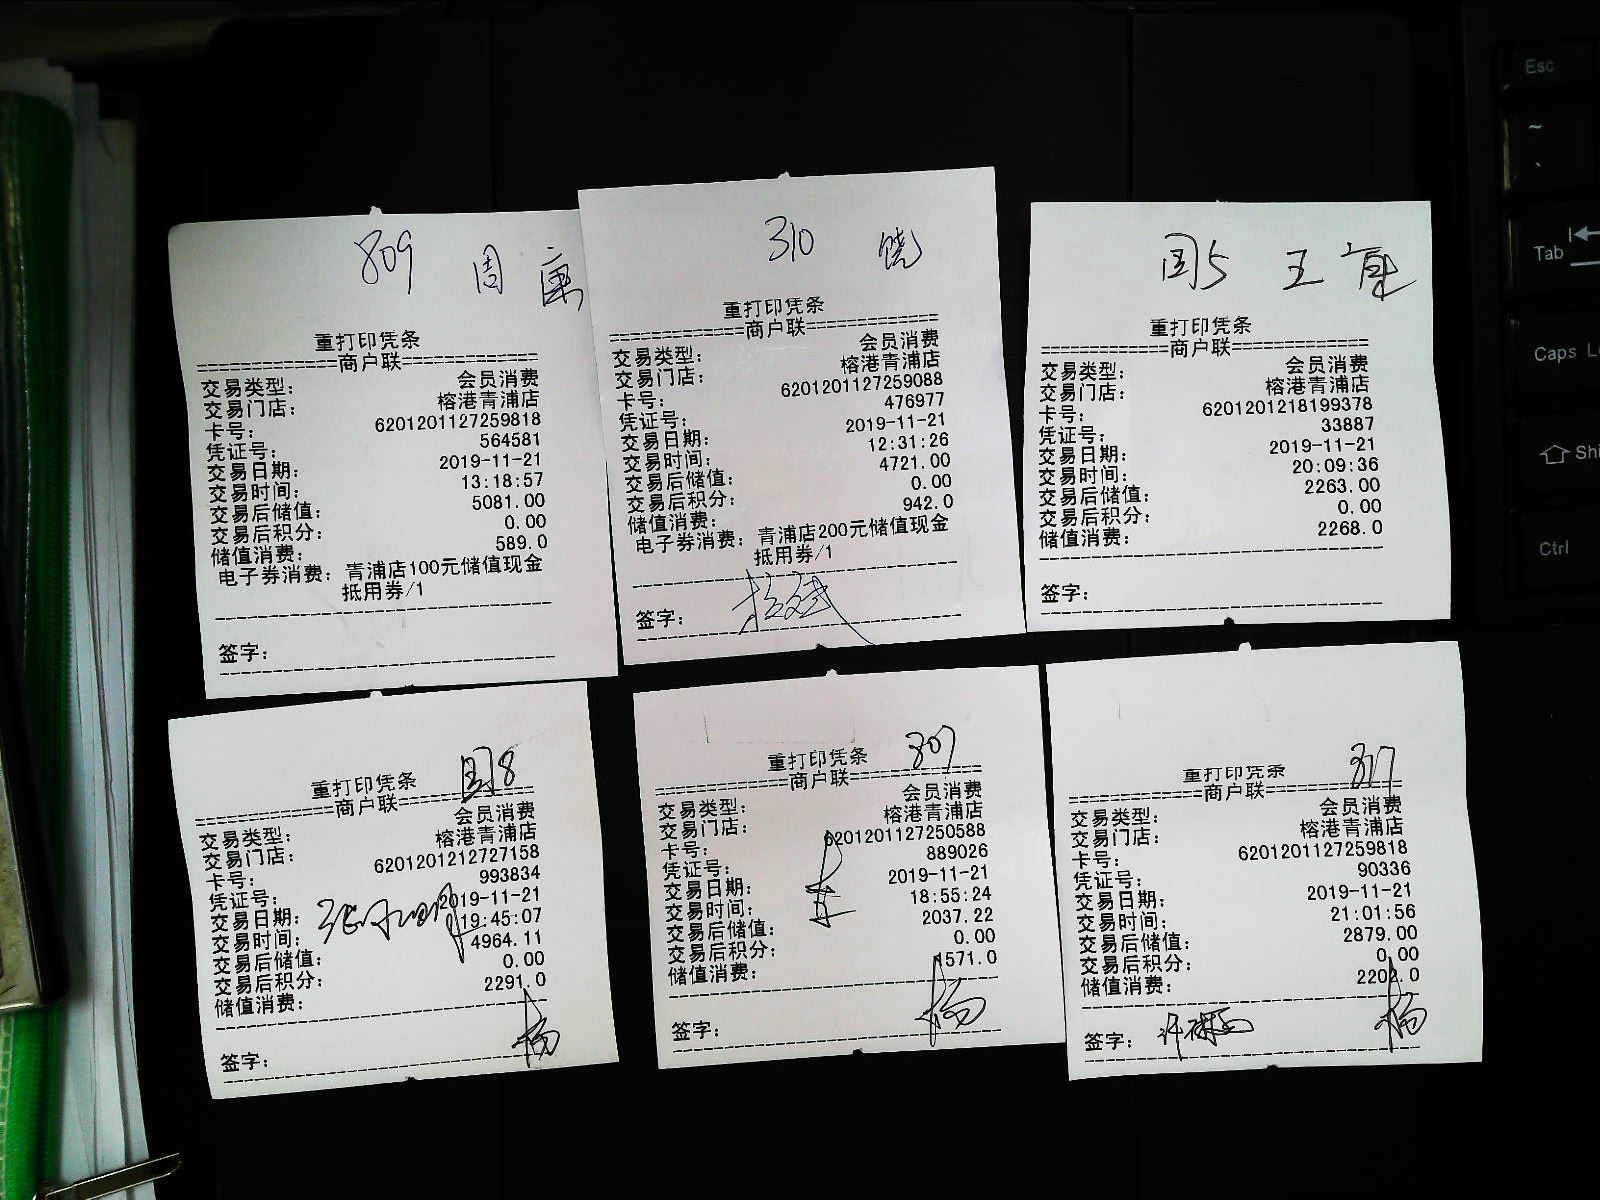 809 周
重打印凭条
============商户联============
交易类型： 会员消费
交易门店： 榕港青浦店
卡号： 6201201127259818
凭证号： 564581
交易日期： 2019-11-21
交易时间： 13:18:57
交易后储值： 5081.00
交易后积分： 0.00
储值消费： 589.0
电子券消费： 青浦店100元储值现金
抵用券/1
签字：
310 饶
重打印凭条
============商户联============
交易类型： 会员消费
交易门店： 榕港青浦店
卡号： 6201201127259088
凭证号： 476977
交易日期： 2019-11-21
交易时间： 12:31:26
交易后储值： 4721.00
交易后积分： 0.00
储值消费： 942.0
电子券消费： 青浦店200元储值现金
抵用券/1
签字：
国5 王
重打印凭条
============商户联============
交易类型： 会员消费
交易门店： 榕港青浦店
卡号： 6201201218199378
凭证号： 33887
交易日期： 2019-11-21
交易时间： 20:09:36
交易后储值： 2263.00
交易后积分： 0.00
储值消费： 2268.0
签字：
国8
重打印凭条
============商户联============
交易类型： 会员消费
交易门店： 榕港青浦店
卡号： 6201201212727158
凭证号： 993834
交易日期： 2019-11-21
交易时间： 19:45:07
交易后储值： 4964.11
交易后积分： 0.00
储值消费： 2291.0
杨
签字：
807
重打印凭条
============商户联============
交易类型： 会员消费
交易门店： 榕港青浦店
卡号： 6201201127250588
凭证号： 889026
交易日期： 2019-11-21
交易时间： 18:55:24
交易后储值： 2037.22
交易后积分： 0.00
储值消费： 1571.0
签字： 杨
317
重打印凭条
============商户联============
交易类型： 会员消费
交易门店： 榕港青浦店
卡号： 6201201127259818
凭证号： 90336
交易日期： 2019-11-21
交易时间： 21:01:56
交易后储值： 2879.00
交易后积分： 0.00
储值消费： 2202.0
签字： 杨
Esc
~
`
Tab
Caps
Shi
Ctrl